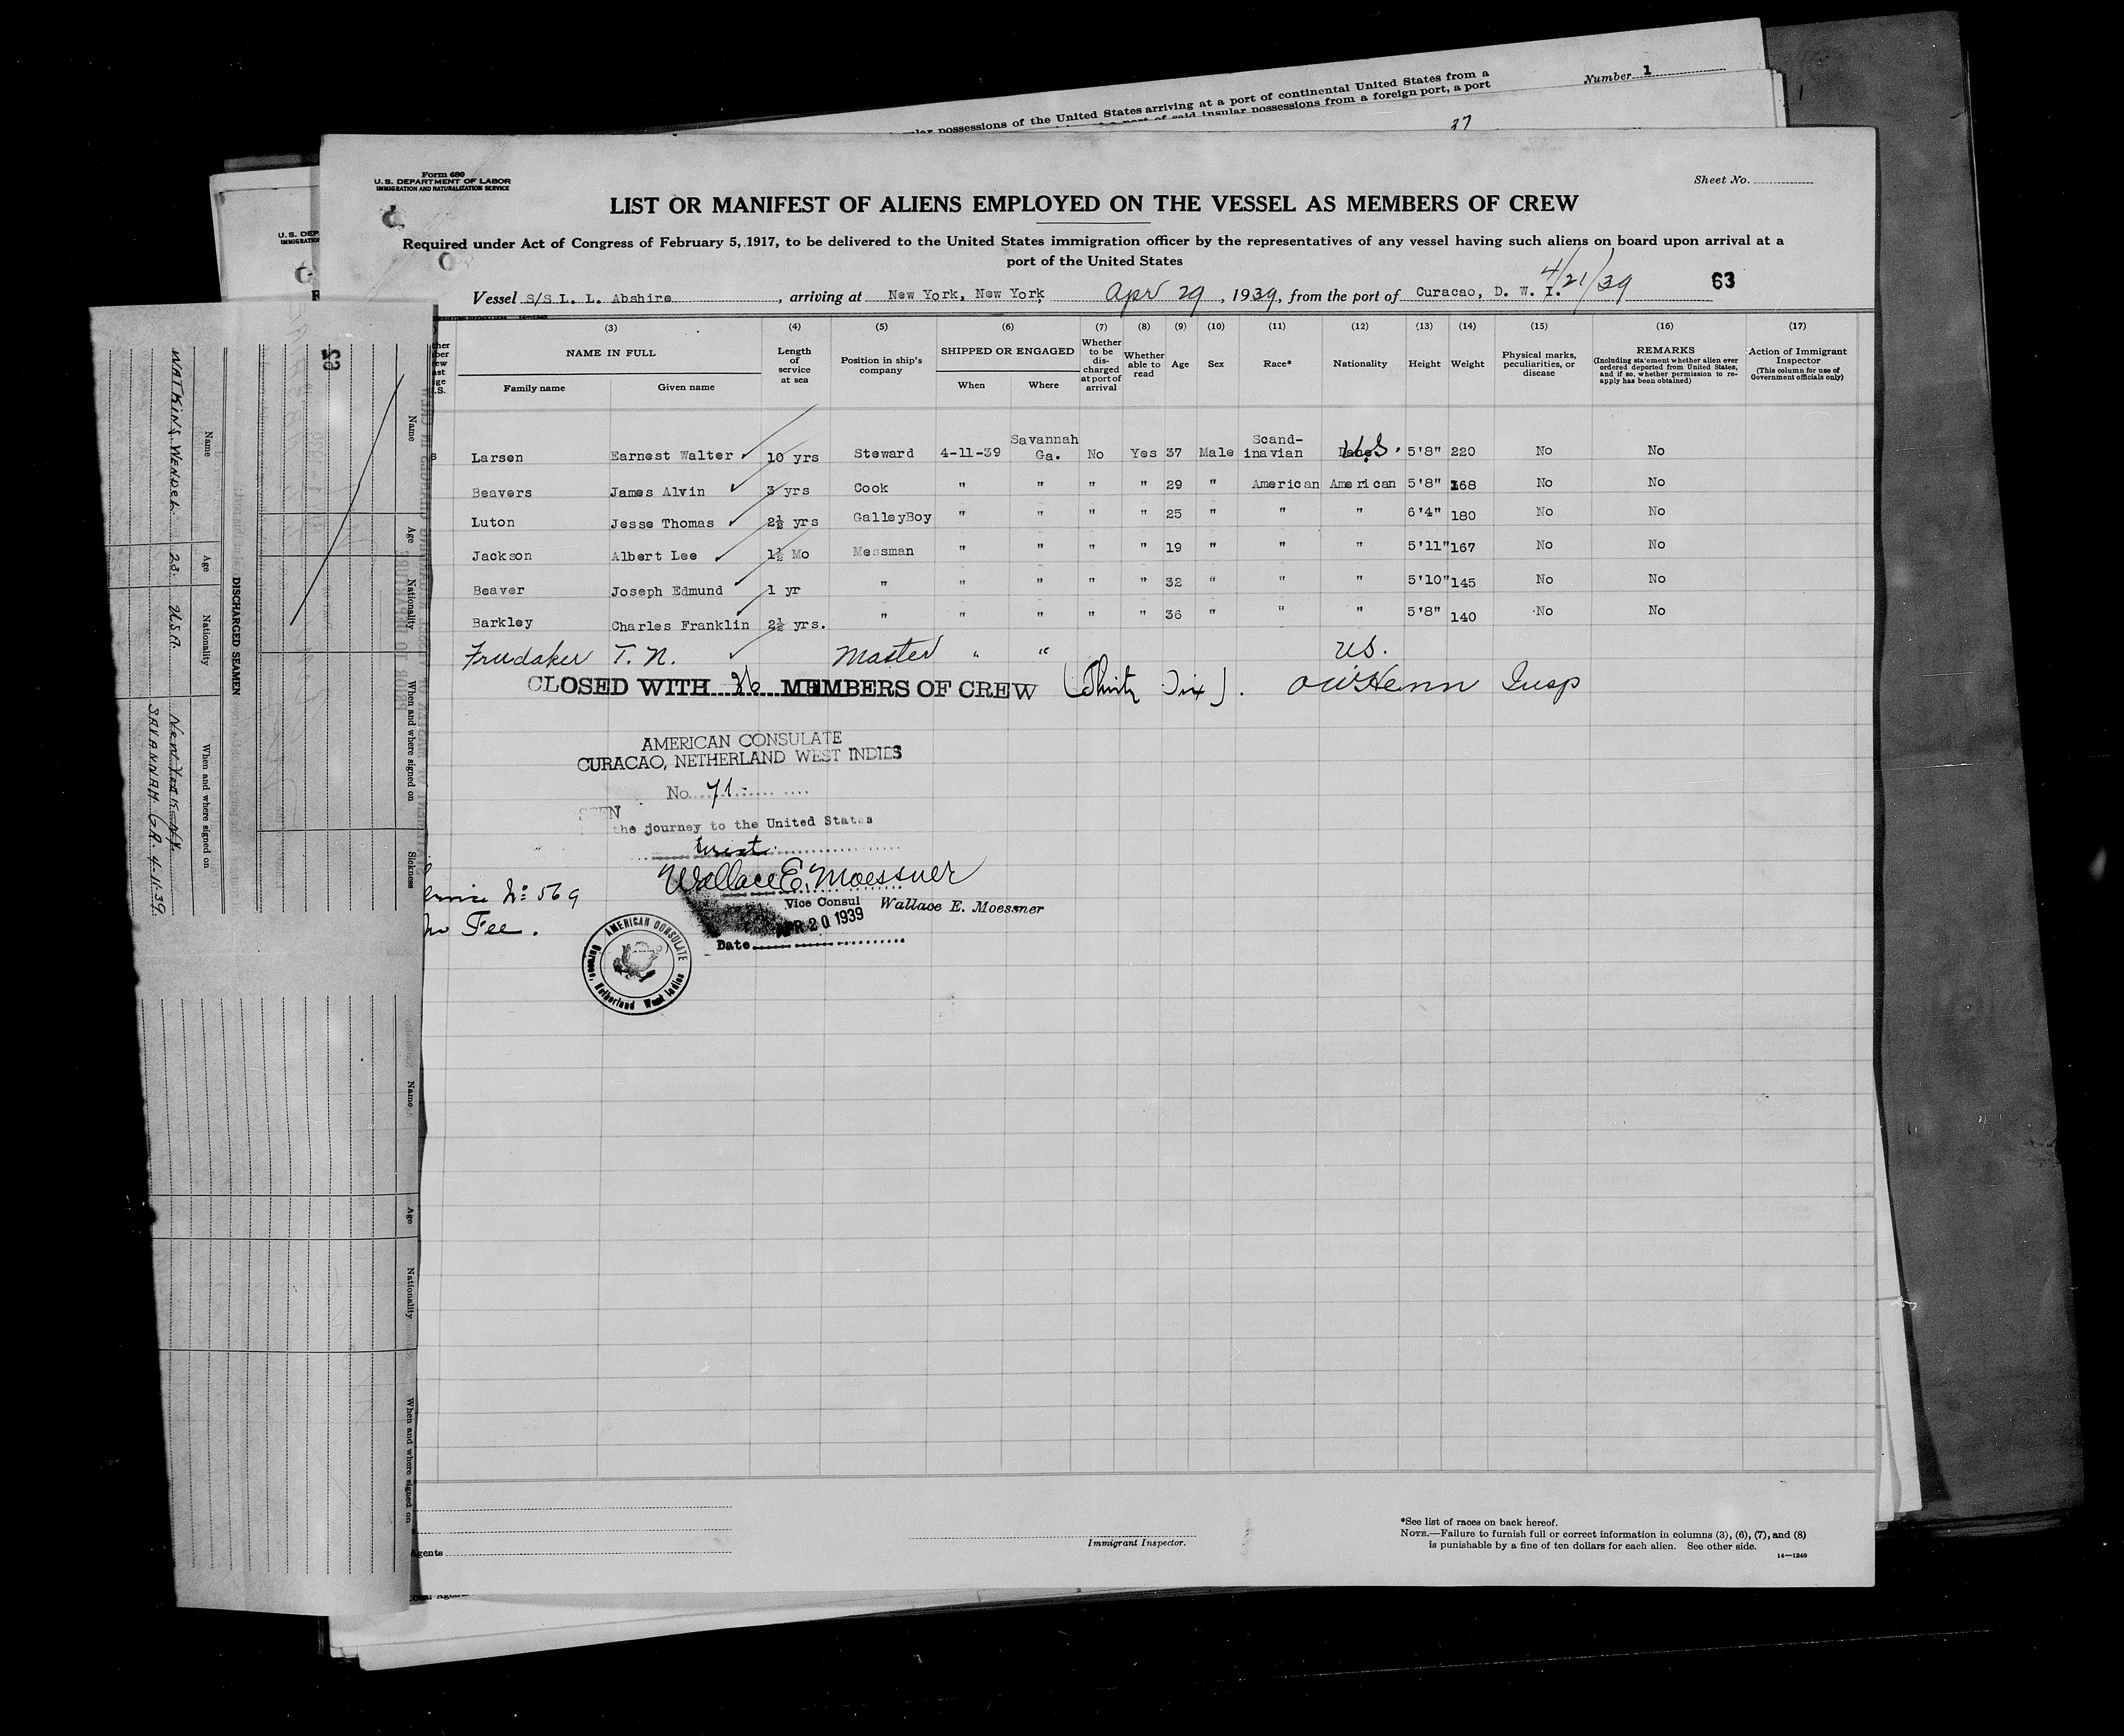 Number 1
possessions of the United States arriving at a port of continental United States from a
port of said insular possessions from a foreign port, a port
37
Form 680
U.S. DEPARTMENT OF LABOR
IMMIGRATION AND NATURALIZATION SERVICE
Sheet No.
LIST OR MANIFEST OF ALIENS EMPLOYED ON THE VESSEL AS MEMBERS OF CREW
Required under Act of Congress of February 5, 1917, to be delivered to the United States immigration officer by the representatives of any vessel having such aliens on board upon arrival at a
port of the United States
4/21/39
63
Vessel S/S L. L. Abshire, arriving at New York, New York, Apr 29, 1939, from the port of Curacao, D. W. I.
(3) (4) (5) (6) (7) (8) (9) (10) (11) (12) (13) (14) (15) (16) (17)
NAME IN FULL
Family name Given name
Length of service at sea
Position in ship's company
SHIPPED OR ENGAGED
When Where
Whether to be discharged at port of arrival
Whether able to read
Age
Sex
Race*
Nationality
Height
Weight
Physical marks, peculiarities, or disease
REMARKS
(Including statement whether alien ever ordered deported from United States, and if so, whether permission to reapply has been obtained)
Action of Immigrant Inspector
(This column for use of Government officials only)
Larsen Earnest Walter 10 yrs Steward 4-11-39 Savannah Ga. No Yes 37 Male Scandinavian U.S. 5'8" 220 No No
Beavers James Alvin 3 yrs Cook " " " " 29 " American American 5'8" 168 No No
Luton Jesse Thomas 2½ yrs GalleyBoy " " " " 25 " " " 6'4" 180 No No
Jackson Albert Lee 1½ Mo Messman " " " " 19 " " " 5'11" 167 No No
Beaver Joseph Edmund 1 yr " " " " " 32 " " " 5'10" 145 No No
Barkley Charles Franklin 2½ yrs. " " " " " 36 " " " 5'8" 140 No No
Frudaker T. N. Master " " U.S.
CLOSED WITH 36 MEMBERS OF CREW (Thirty Six). Insp
AMERICAN CONSULATE
CURACAO, NETHERLAND WEST INDIES
No. 71
SEEN
the journey to the United States
Wallace E. Moessner
Vice Consul Wallace E. Moessner
APR 20 1939
Date
No 569
No Fee.
AMERICAN CONSULATE
Curacao, Netherland West Indies
Agents
Immigrant Inspector.
*See list of races on back hereof.
NOTE.—Failure to furnish full or correct information in columns (3), (6), (7), and (8)
is punishable by a fine of ten dollars for each alien. See other side.
14—1240
U.S. DEP
IMMIGRATION
63
Name Age Nationality When and where signed on Sickness
DISCHARGED SEAMEN
Name Age Nationality When and where signed on
WATKINS, WENDEL 23. U.S.A. New York N.Y.
SAVANNAH GA. 4-11-39
Name Age Nationality When and where signed on